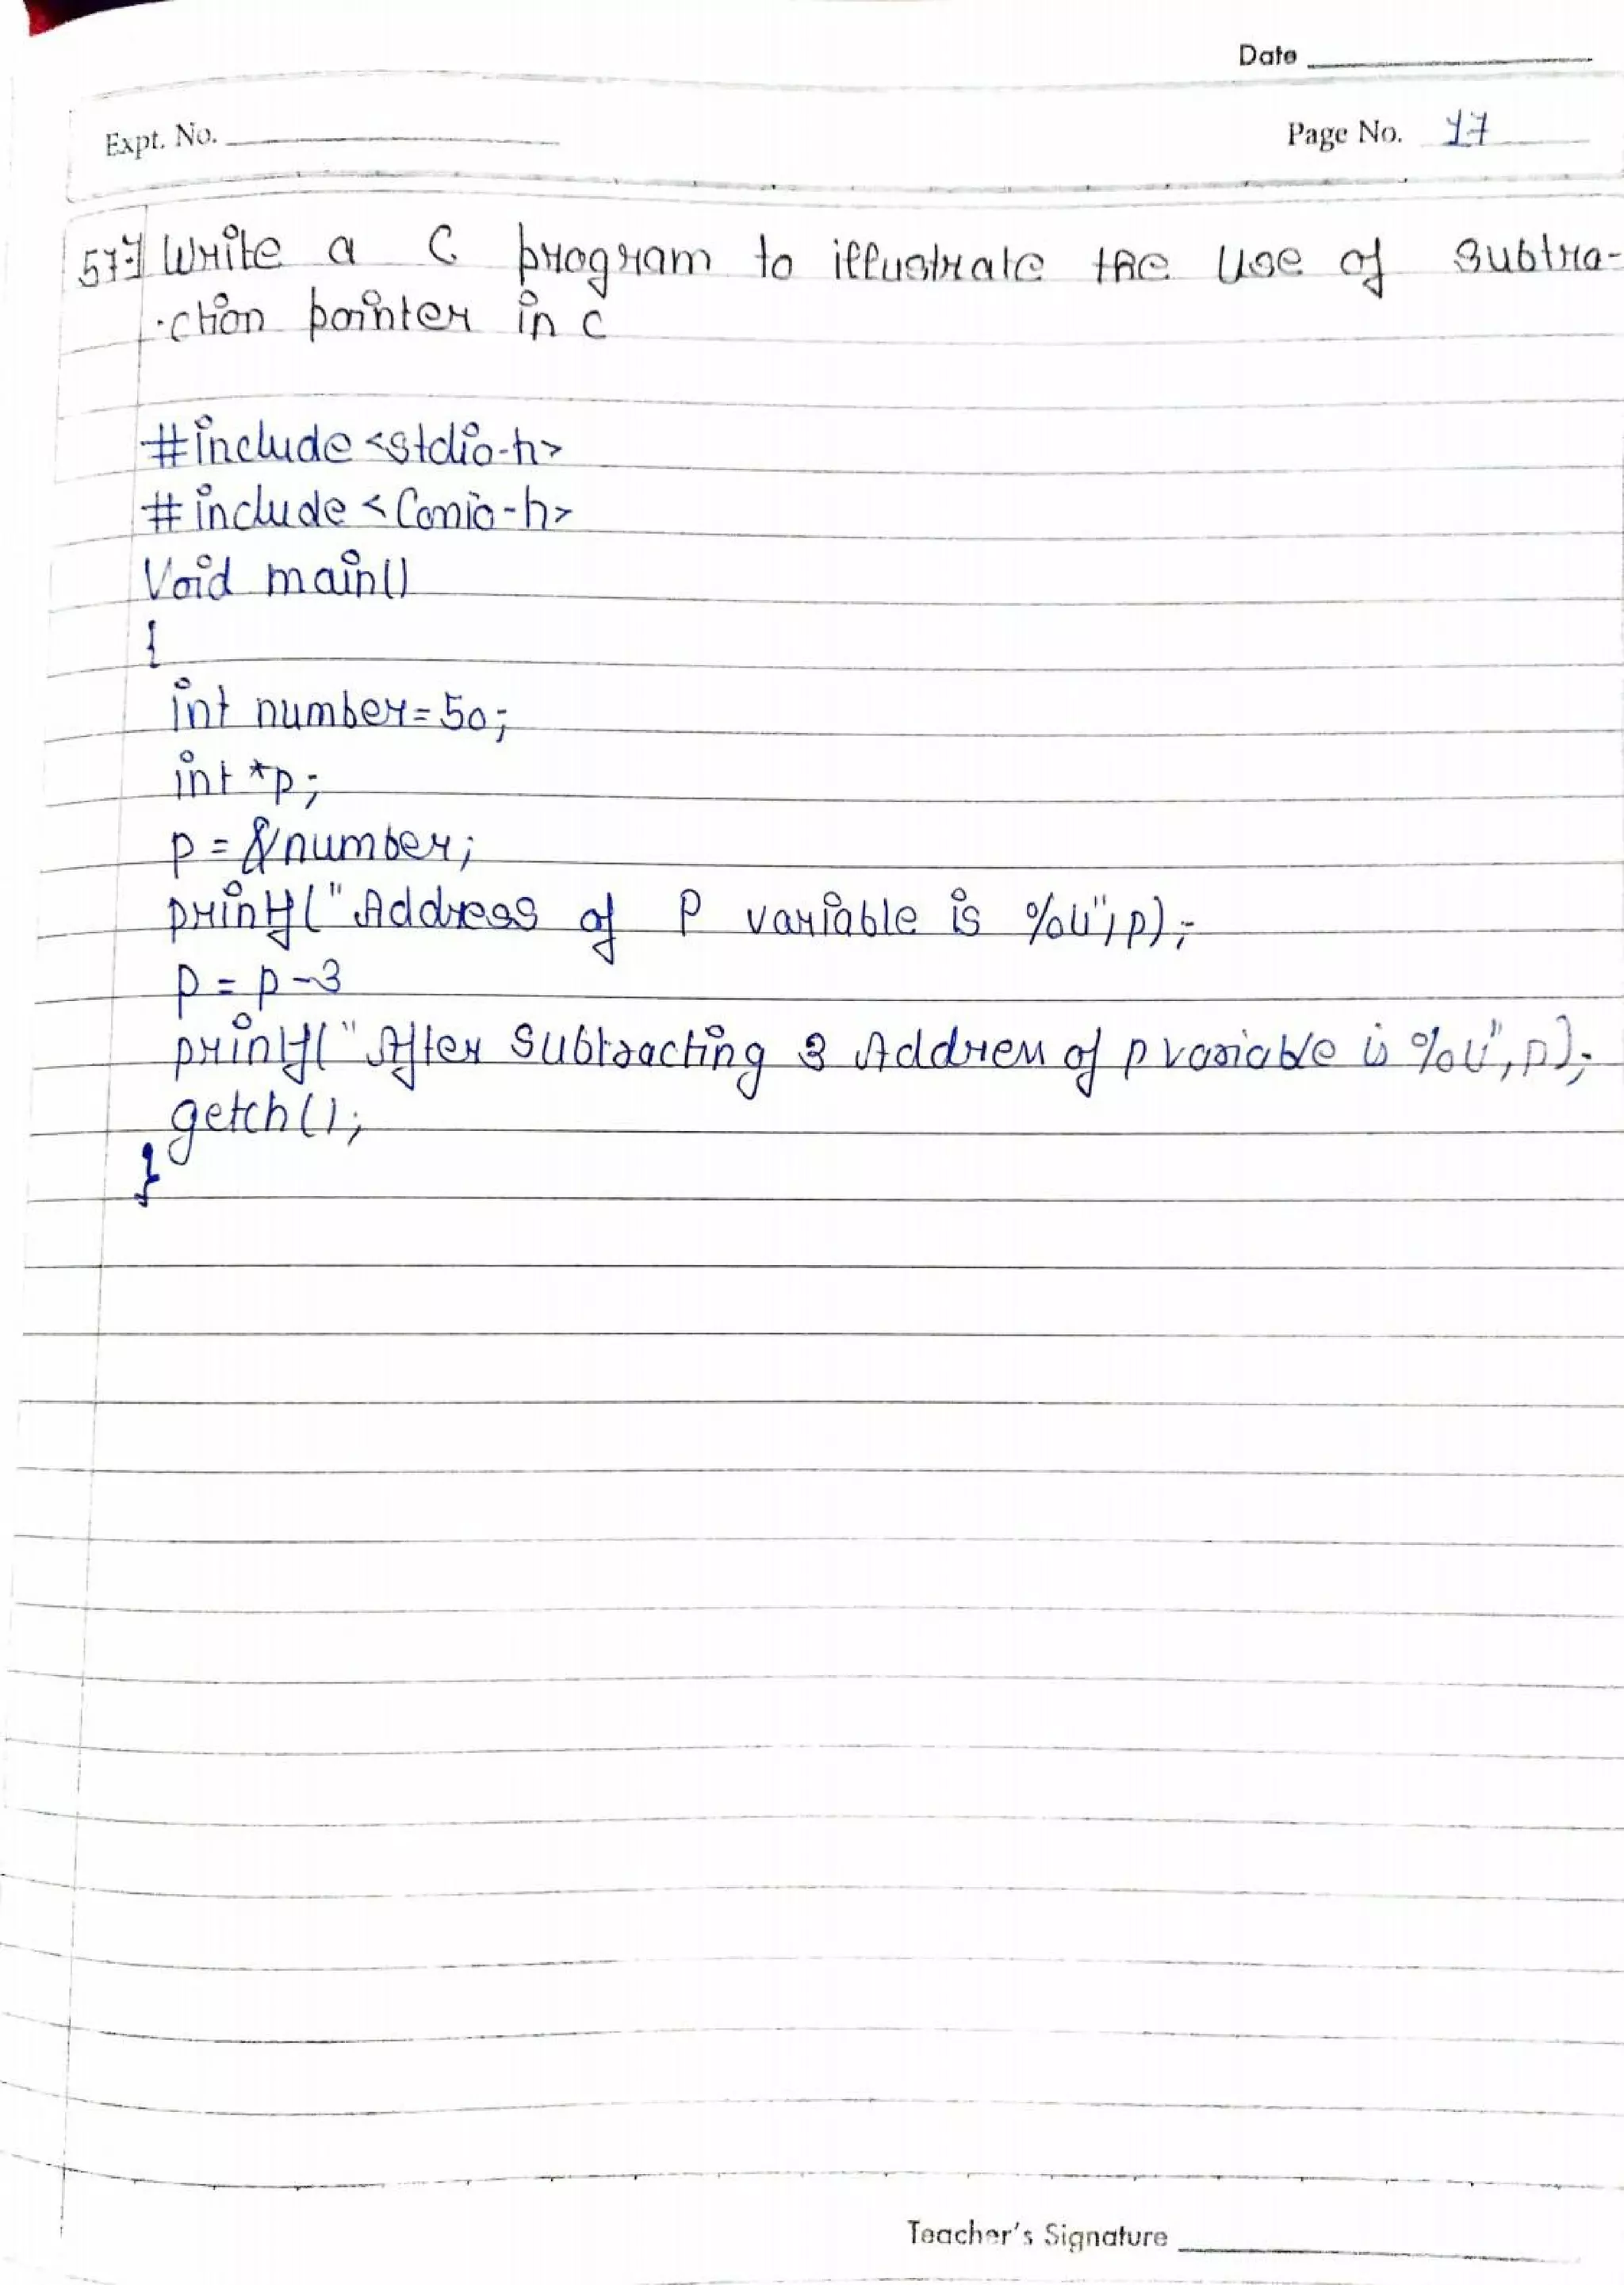 Date
Expt. No.
Page No. 17
57⇒ Write a C program to illustrate the use of subtra-
-ction pointer in c
#include <stdio.h>
#include <Conio.h>
Void main()
{
int number=50;
int *p;
p = &number;
printf("Address of P variable is %u",p);
p = p-3
printf("After Subtracting 3 Address of p variable is %u",p);
getch();
}
Teacher's Signature